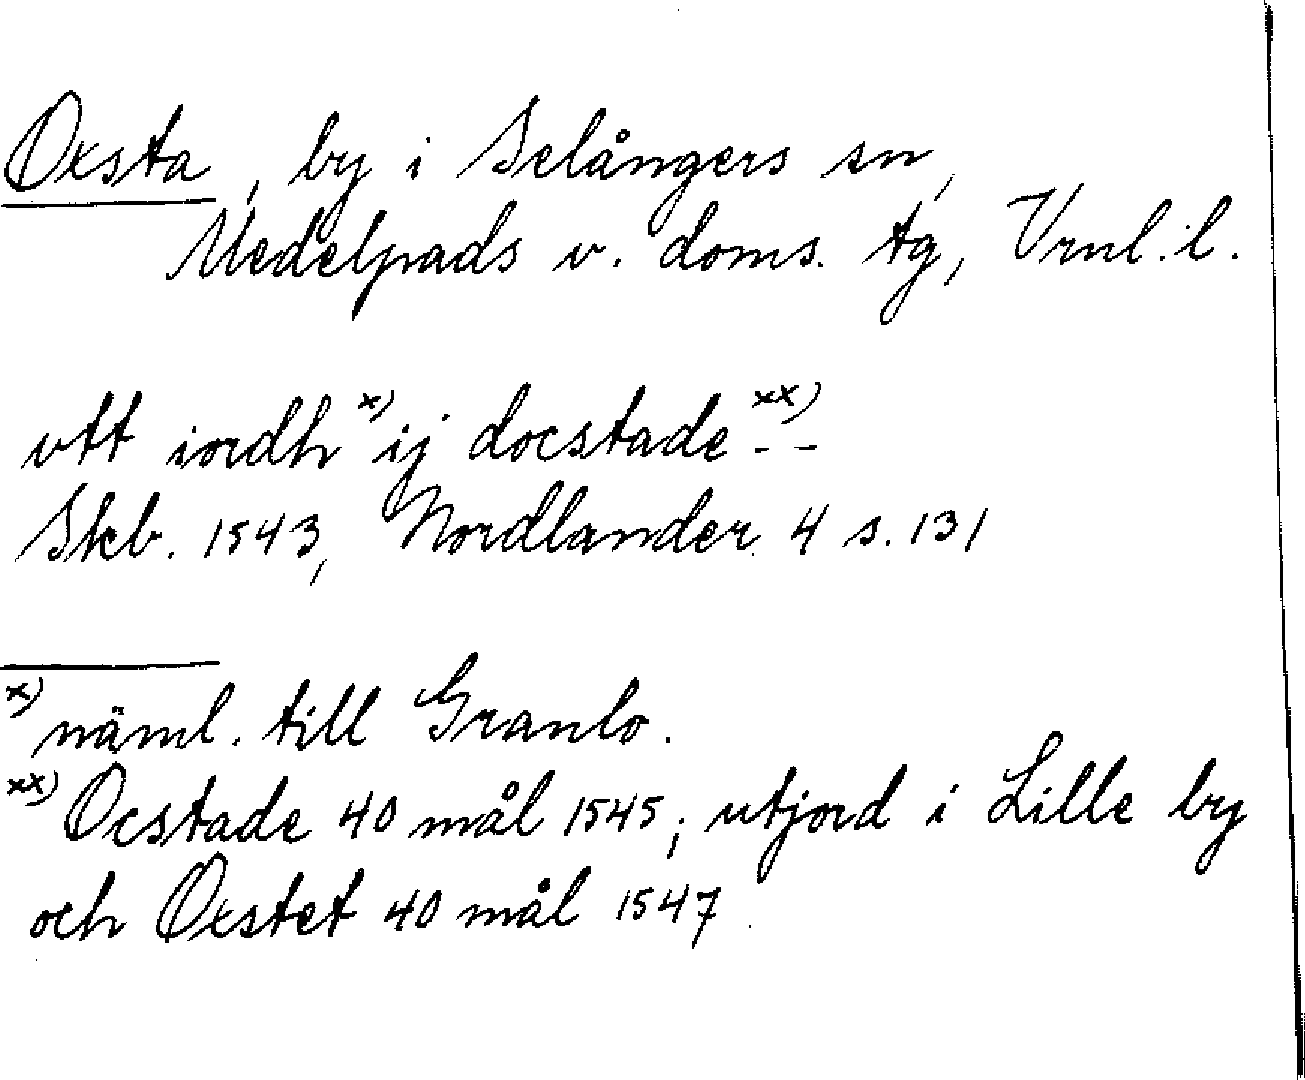 Oxsta, by i Selångers sn,
Medelpads v. doms. tg, Vrnl. l.
vtt iordh x) ij docstade - - xx)
Skb. 1543, Nordlander 4 s. 131
x) näml. till Granlo.
xx) Ocstade 40 mål 1545; utjord i Lille by
och Oxstet 40 mål 1547.